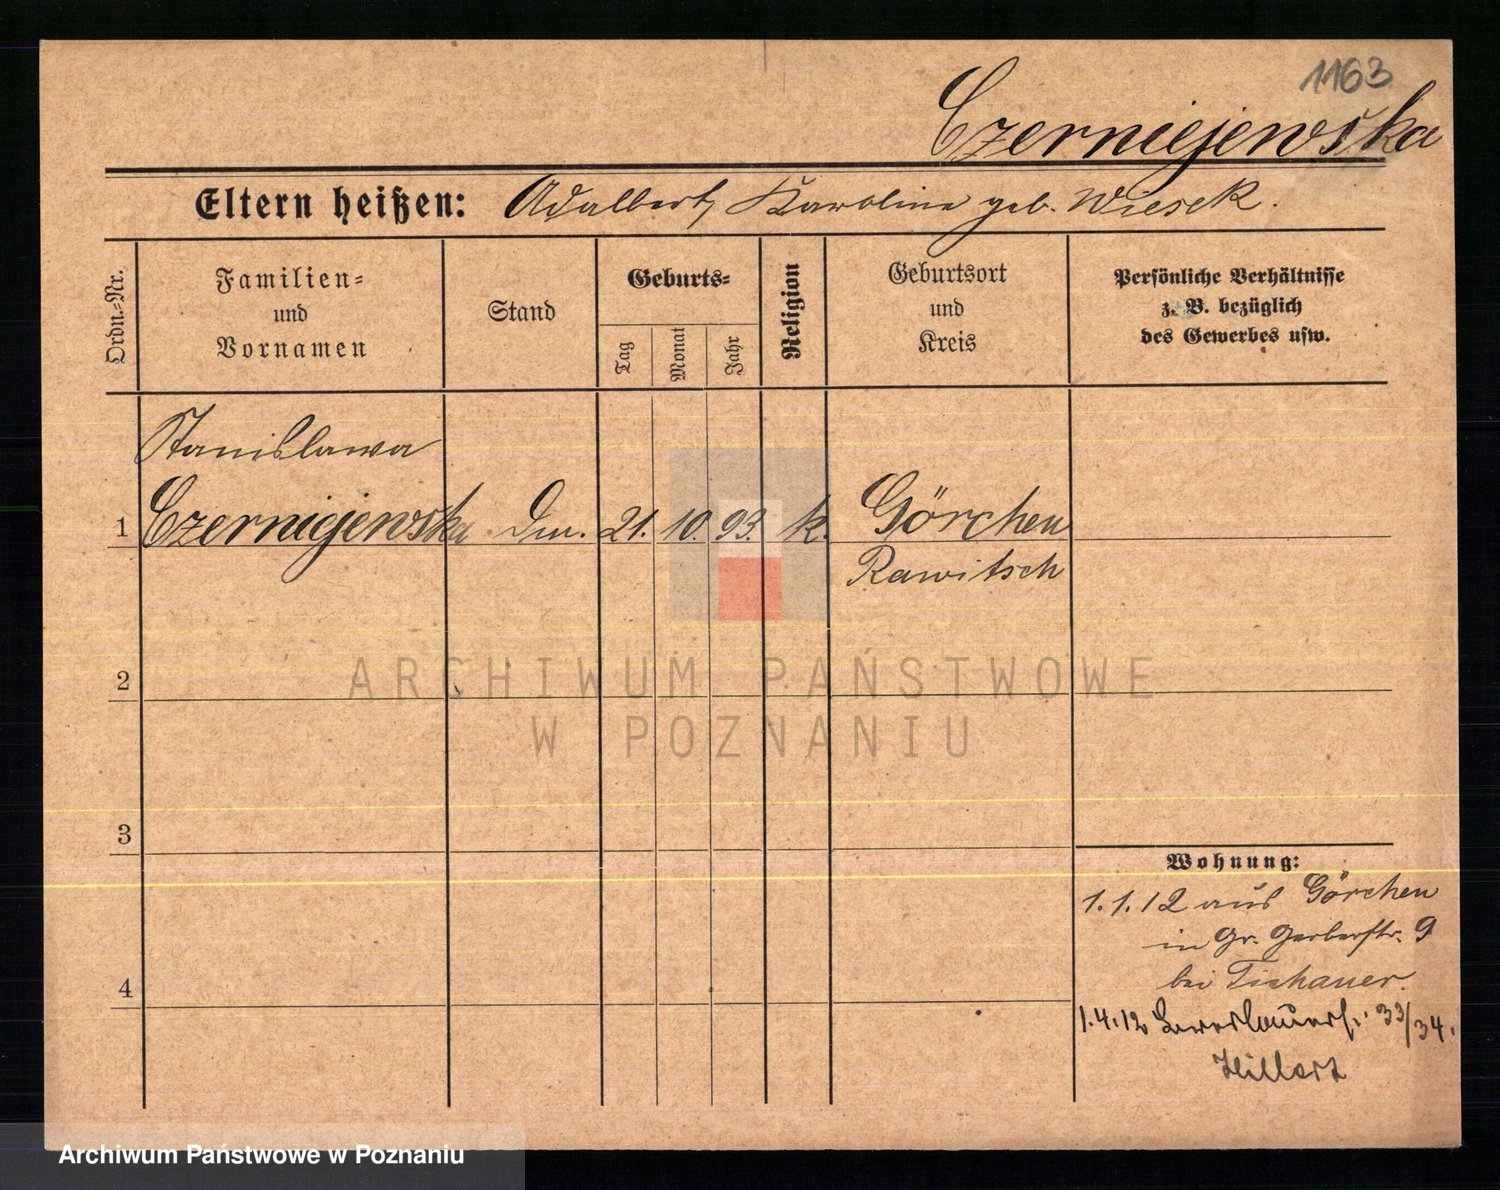 1163
Czerniejewska
Eltern heißen: Adalbert, Karoline geb. Wiesek.
Ordn.-Nr.
Familien-
und
Vornamen
Stand
Geburts-
Tag
Monat
Jahr
Religion
Geburtsort
und
Kreis
Persönliche Verhältnisse
z. B. bezüglich
des Gewerbes usw.
Stanislawa
1 Czerniejewska 21. 10. 93. k. Görchen
Rawitsch
2
ARCHIWUM PAŃSTWOWE
W POZNANIU
3
Wohnung:
1.1.12 aus Görchen
in Gr. Gerberstr. 9
bei Tischauer.
4
1.4.12 33/34.
Hillert
Archiwum Państwowe w Poznaniu